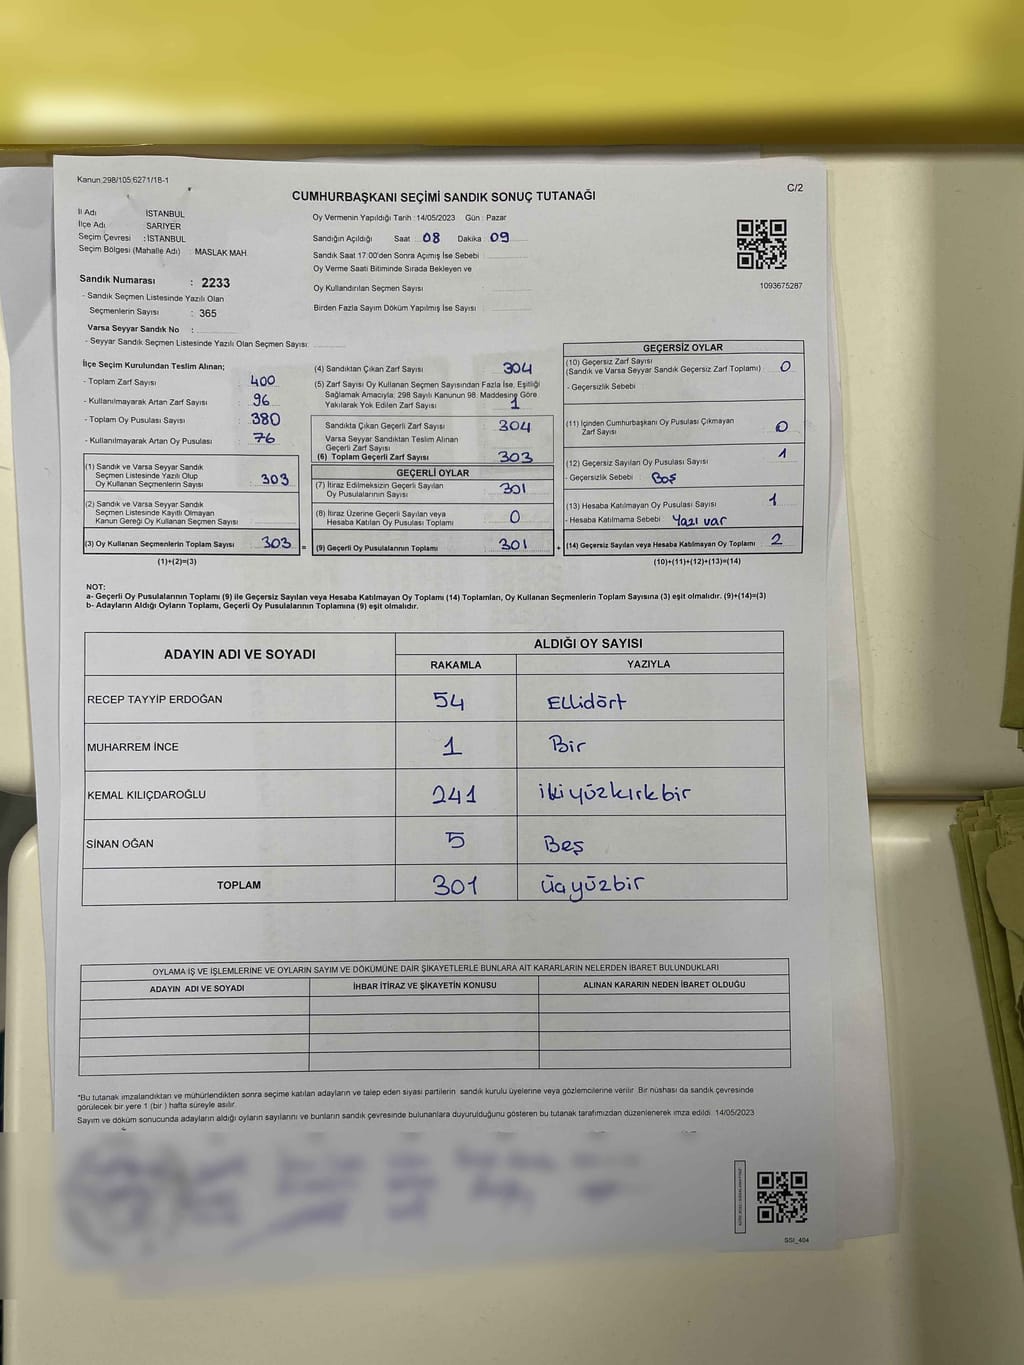 Kanun:298/105;6271/18-1
C/2
CUMHURBAŞKANI SEÇİMİ SANDIK SONUÇ TUTANAĞI
İl Adı İSTANBUL
İlçe Adı SARIYER
Seçim Çevresi : İSTANBUL
Seçim Bölgesi (Mahalle Adı) : MASLAK MAH.
Sandık Numarası : 2233
- Sandık Seçmen Listesinde Yazılı Olan
Seçmenlerin Sayısı : 365
Varsa Seyyar Sandık No :
- Seyyar Sandık Seçmen Listesinde Yazılı Olan Seçmen Sayısı:
Oy Vermenin Yapıldığı Tarih : 14/05/2023 Gün : Pazar
Sandığın Açıldığı Saat 08 Dakika 09
Sandık Saat 17:00'den Sonra Açımış İse Sebebi
Oy Verme Saati Bitiminde Sırada Bekleyen ve
Oy Kullandırılan Seçmen Sayısı :
Birden Fazla Sayım Döküm Yapılmış İse Sayısı :
1093675287
İlçe Seçim Kurulundan Teslim Alınan;
- Toplam Zarf Sayısı : 400
- Kullanılmayarak Artan Zarf Sayısı : 96
- Toplam Oy Pusulası Sayısı : 380
- Kullanılmayarak Artan Oy Pusulası : 76
(1) Sandık ve Varsa Seyyar Sandık
Seçmen Listesinde Yazılı Olup
Oy Kullanan Seçmenlerin Sayısı : 303
(2) Sandık ve Varsa Seyyar Sandık
Seçmen Listesinde Kayıtlı Olmayan
Kanun Gereği Oy Kullanan Seçmen Sayısı :
(3) Oy Kullanan Seçmenlerin Toplam Sayısı : 303 =
(1)+(2)=(3)
(4) Sandıktan Çıkan Zarf Sayısı : 304
(5) Zarf Sayısı Oy Kullanan Seçmen Sayısından Fazla İse, Eşitliği
Sağlamak Amacıyla; 298 Sayılı Kanunun 98. Maddesine Göre
Yakılarak Yok Edilen Zarf Sayısı : 1
Sandıkta Çıkan Geçerli Zarf Sayısı : 304
Varsa Seyyar Sandıktan Teslim Alınan
Geçerli Zarf Sayısı :
(6) Toplam Geçerli Zarf Sayısı : 303
GEÇERLİ OYLAR
(7) İtiraz Edilmeksizin Geçerli Sayılan
Oy Pusulalarının Sayısı : 301
(8) İtiraz Üzerine Geçerli Sayılan veya
Hesaba Katılan Oy Pusulası Toplamı : 0
(9) Geçerli Oy Pusulalarının Toplamı : 301 +
GEÇERSİZ OYLAR
(10) Geçersiz Zarf Sayısı
(Sandık ve Varsa Seyyar Sandık Geçersiz Zarf Toplamı) : 0
- Geçersizlik Sebebi
(11) İçinden Cumhurbaşkanı Oy Pusulası Çıkmayan
Zarf Sayısı : 0
(12) Geçersiz Sayılan Oy Pusulası Sayısı : 1
- Geçersizlik Sebebi : Boş
(13) Hesaba Katılmayan Oy Pusulası Sayısı : 1
- Hesaba Katılmama Sebebi : Yazı var
(14) Geçersiz Sayılan veya Hesaba Katılmayan Oy Toplamı : 2
(10)+(11)+(12)+(13)=(14)
NOT:
a- Geçerli Oy Pusulalarının Toplamı (9) ile Geçersiz Sayılan veya Hesaba Katılmayan Oy Toplamı (14) Toplamları, Oy Kullanan Seçmenlerin Toplam Sayısına (3) eşit olmalıdır. (9)+(14)=(3)
b- Adayların Aldığı Oyların Toplamı, Geçerli Oy Pusulalarının Toplamına (9) eşit olmalıdır.
ADAYIN ADI VE SOYADI ALDIĞI OY SAYISI
RAKAMLA YAZIYLA
RECEP TAYYİP ERDOĞAN 54 Ellidört
MUHARREM İNCE 1 Bir
KEMAL KILIÇDAROĞLU 241 ikiyüzkırkbir
SİNAN OĞAN 5 Beş
TOPLAM 301 üçyüzbir
OYLAMA İŞ VE İŞLEMLERİNE VE OYLARIN SAYIM VE DÖKÜMÜNE DAİR ŞİKAYETLERLE BUNLARA AİT KARARLARIN NELERDEN İBARET BULUNDUKLARI
ADAYIN ADI VE SOYADI İHBAR İTİRAZ VE ŞİKAYETİN KONUSU ALINAN KARARIN NEDEN İBARET OLDUĞU
*Bu tutanak imzalandıktan ve mühürlendikten sonra seçime katılan adayların ve talep eden siyasi partilerin sandık kurulu üyelerine veya gözlemcilerine verilir. Bir nüshası da sandık çevresinde
görülecek bir yere 1 (bir ) hafta süreyle asılır.
Sayım ve döküm sonucunda adayların aldığı oyların sayılarını ve bunların sandık çevresinde bulunanlara duyurulduğunu gösteren bu tutanak tarafımızdan düzenlenerek imza edildi. 14/05/2023
SSI_404